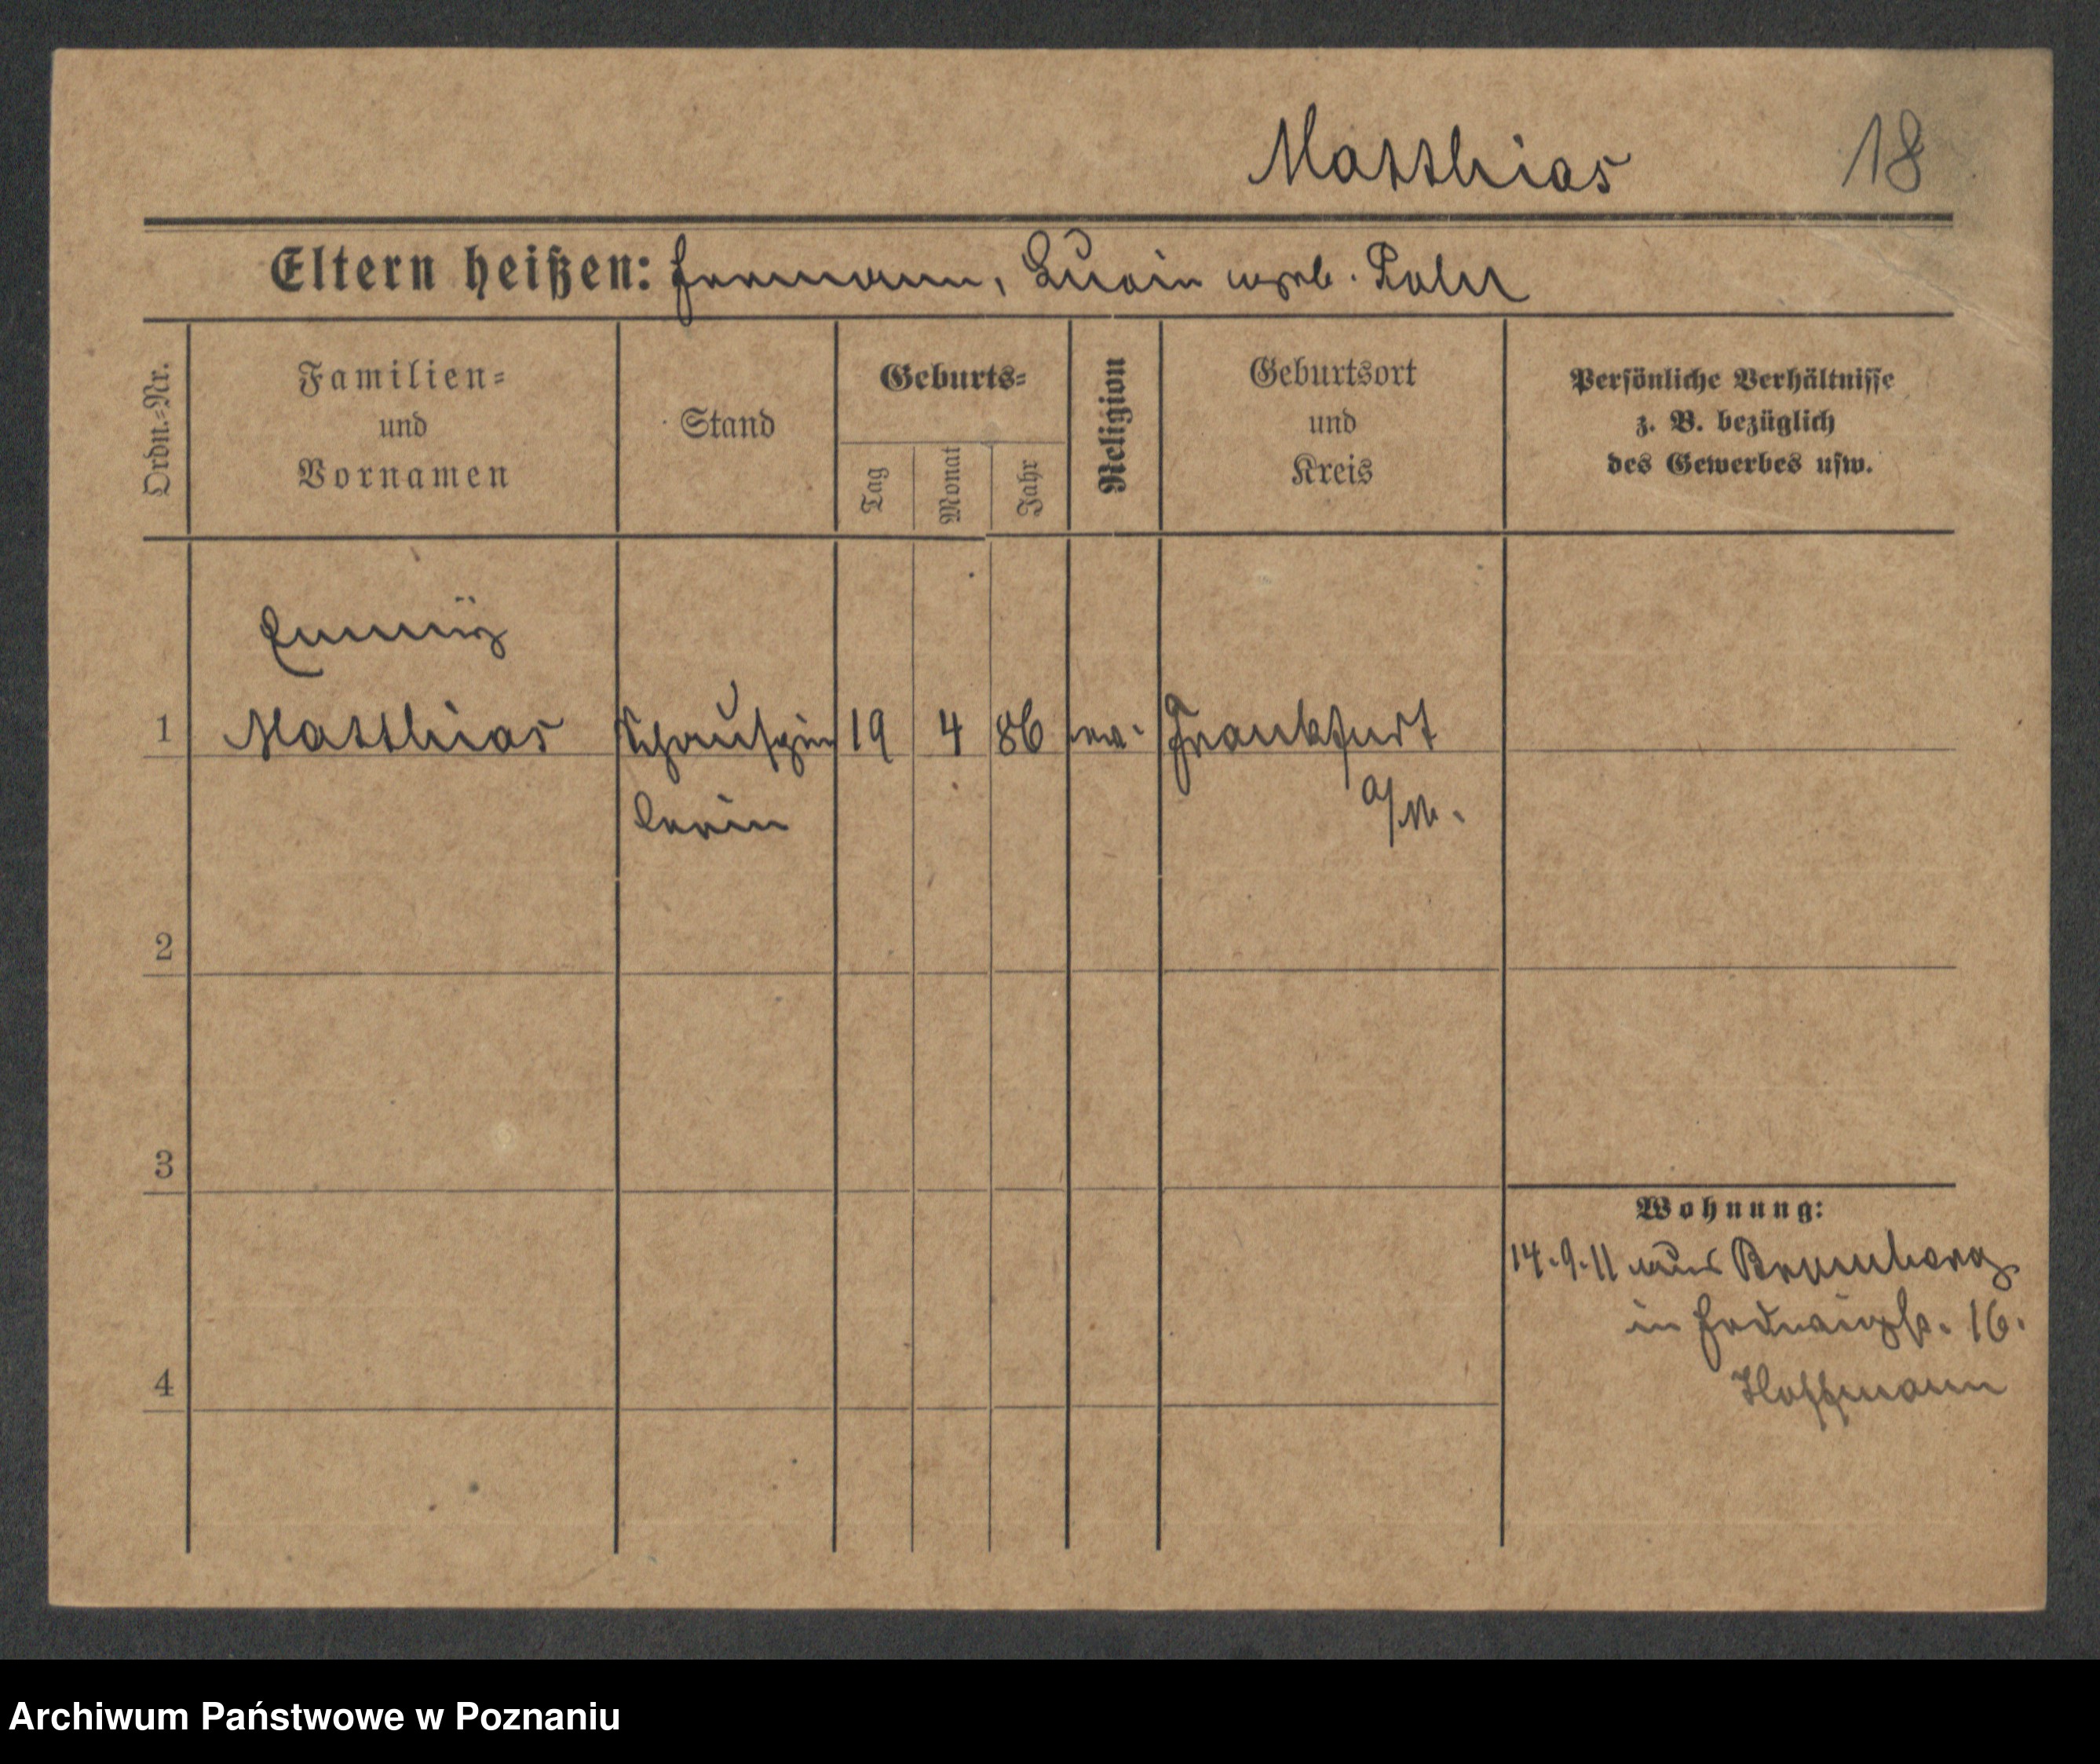 Matthias 18
Eltern heißen: Hermann, Luain geb.
Ordn.=Nr.
Familien=
und
Vornamen
Stand
Geburts=
Tag
Monat
Jahr
Religion
Geburtsort
und
Kreis
Persönliche Verhältnisse
z. B. bezüglich
des Gewerbes usw.
1 Matthias Schauspie 19 4 86 ev. Frankfurt
lerin a/M.
2
3
4
Wohnung:
14.9.11 aus Bromberg
in 16.
Hoffmann
Archiwum Państwowe w Poznaniu